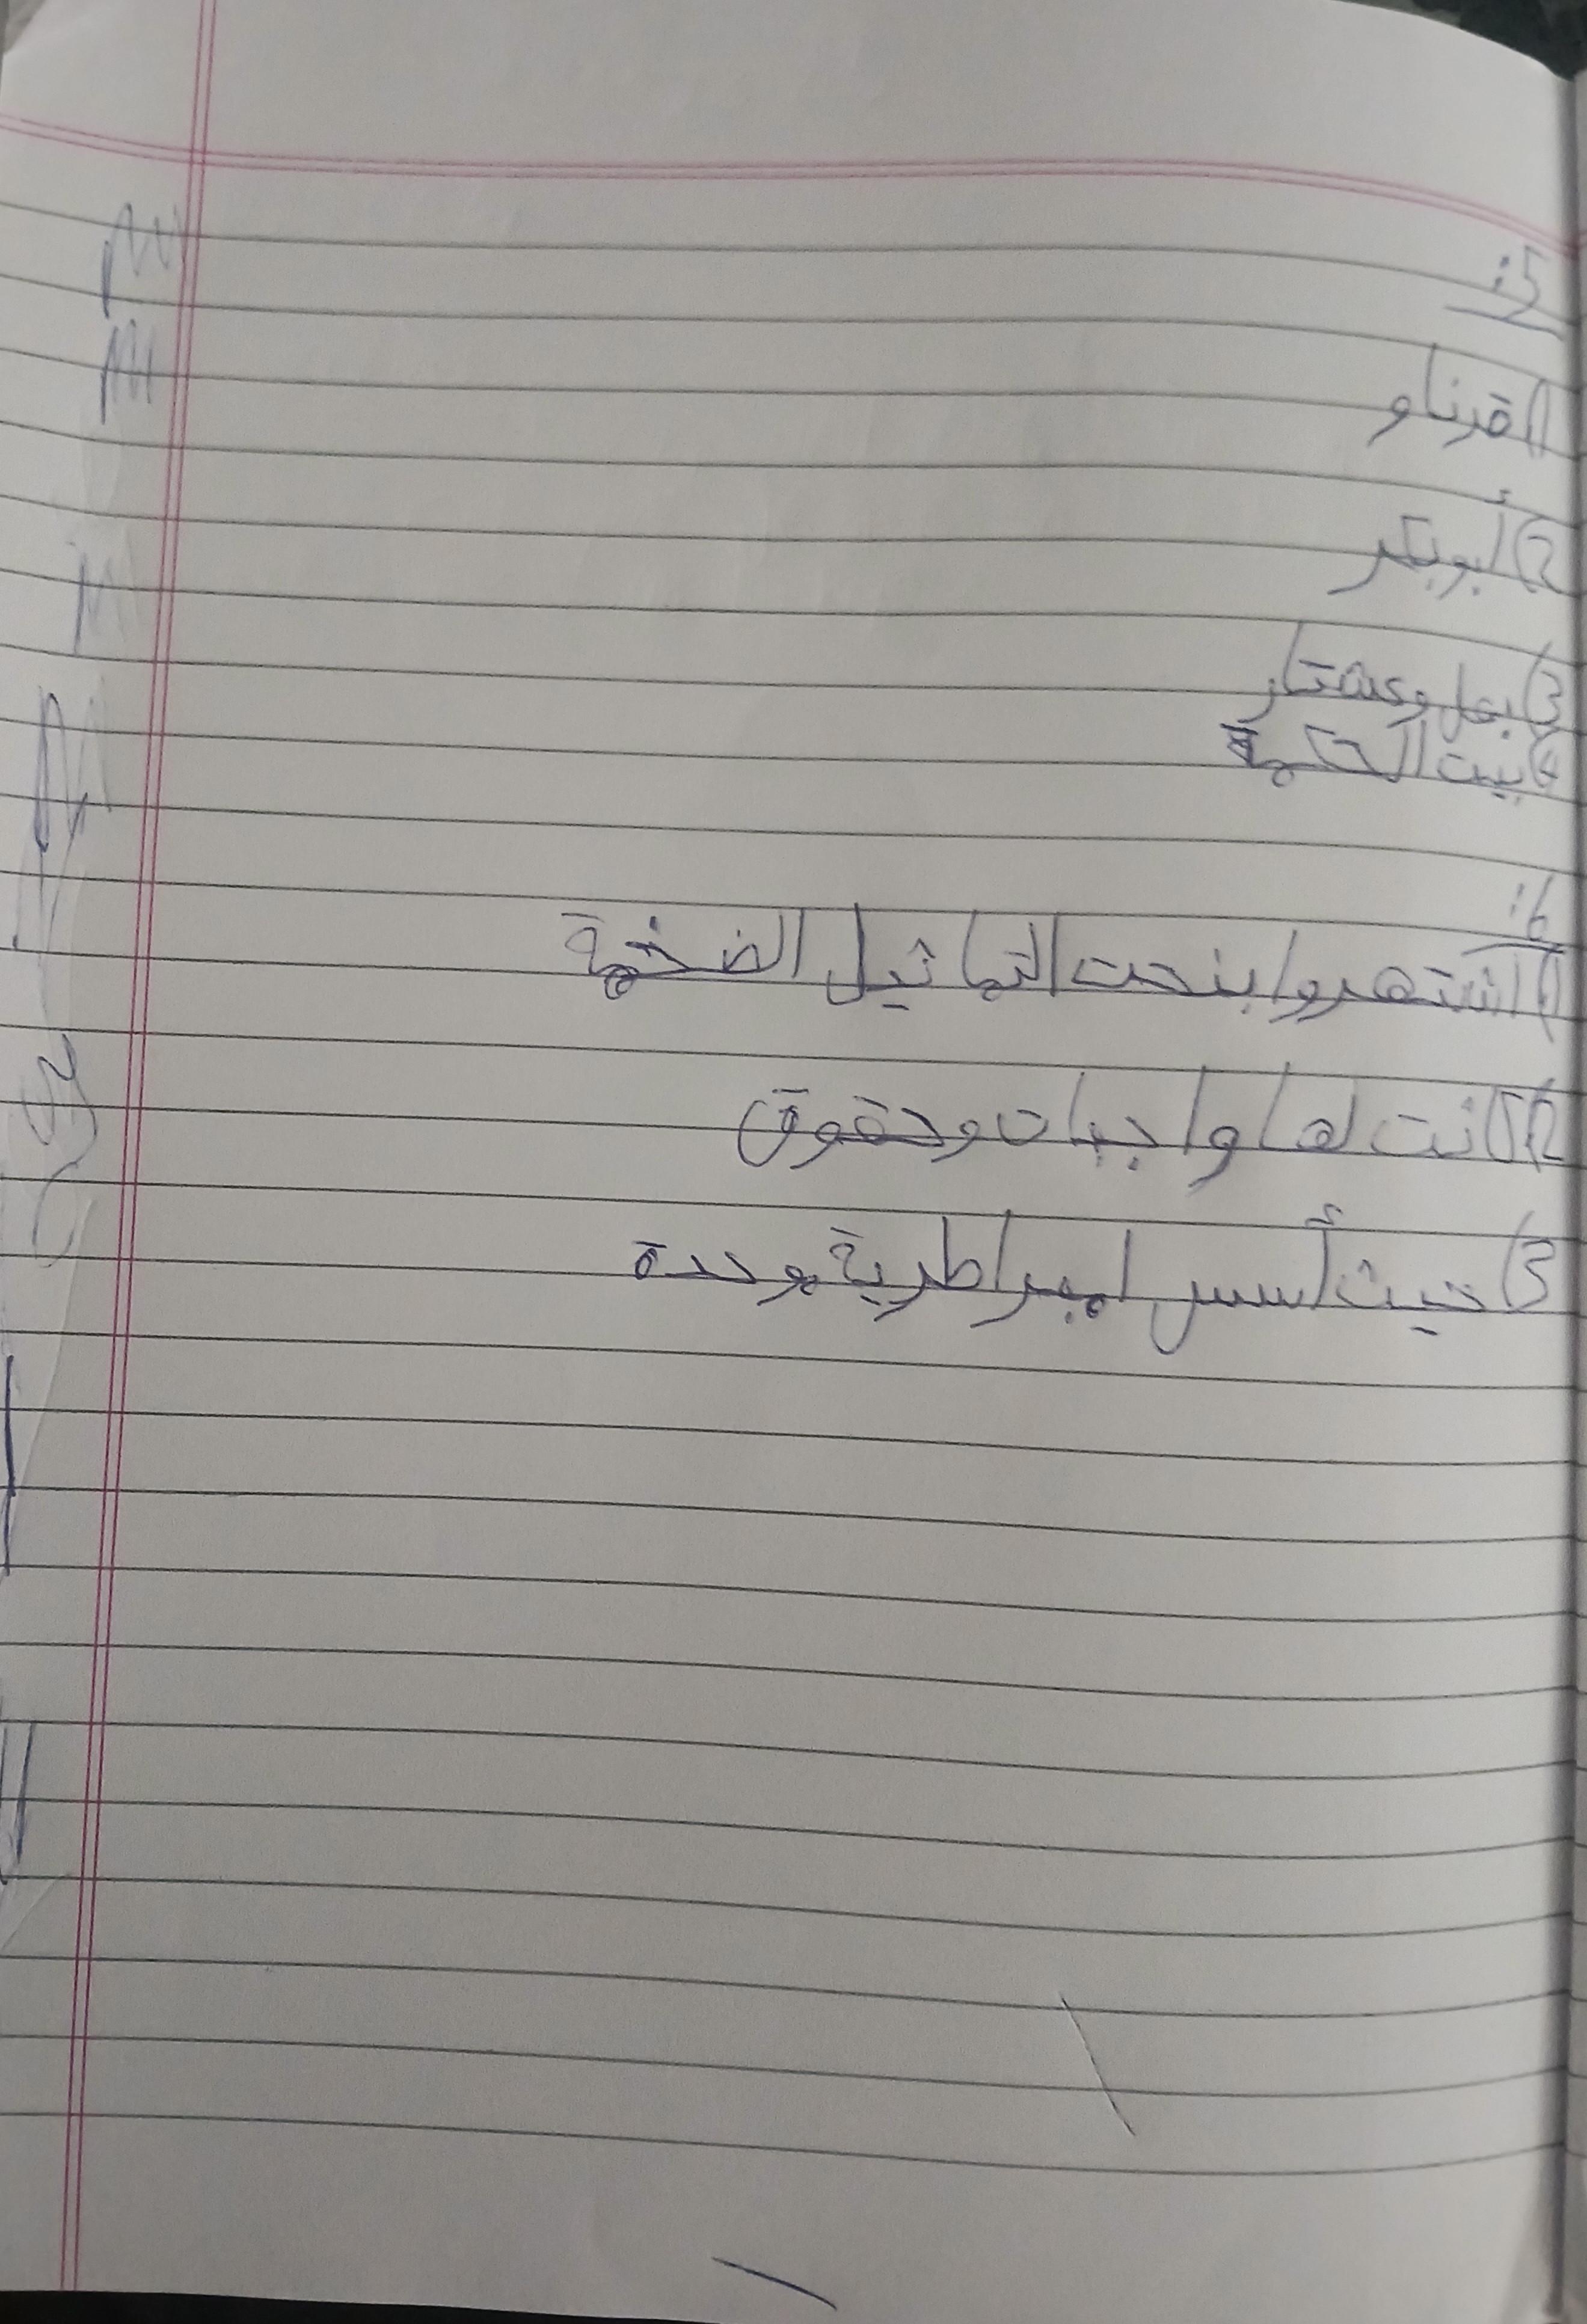 5:
1) قرناو
2) أبوبكر
3) بعل وعشتار
4) بيت الحكمة
6:
1) اشتهروا بنحت التماثيل الضخمة
2) كانت لها واجبات وحقوق
3) حيث أسس امبراطرية موحدة